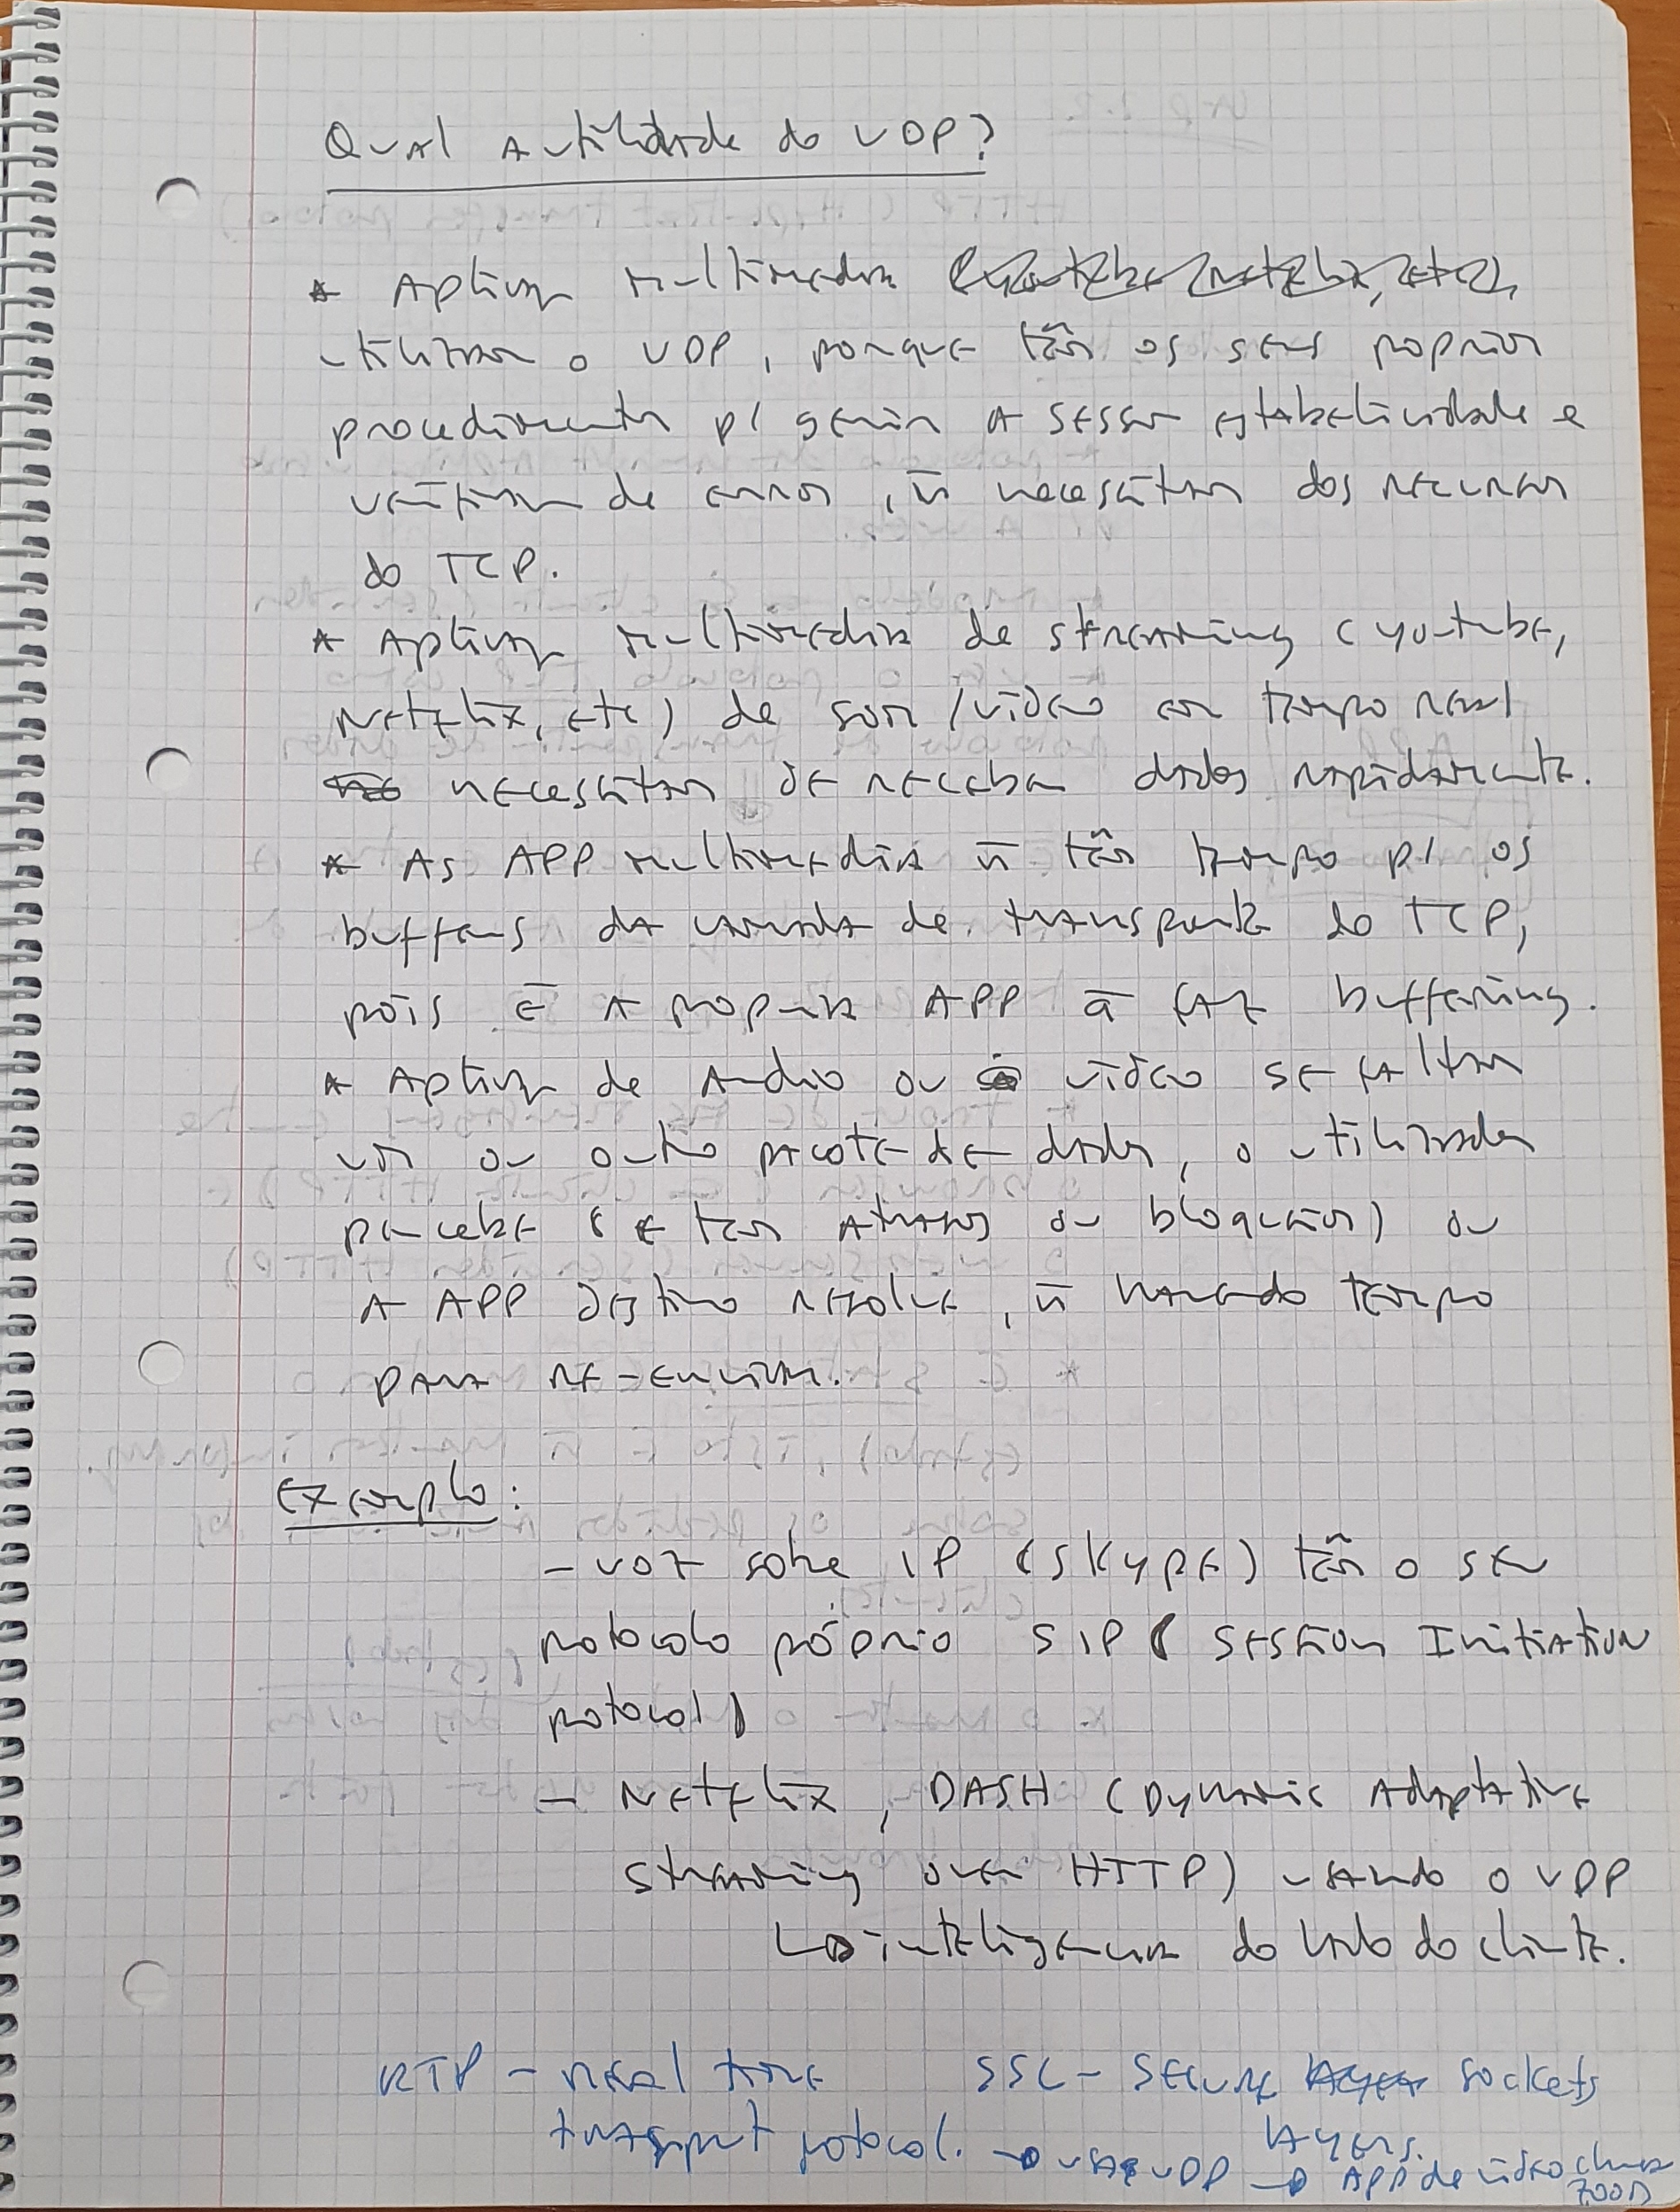 Qual a utilidade do UDP?
* Aplicaç multimedia (youtube, netflix, etc)
utilizam o UDP, porque têm os seus proprios
procedimentos p/ gerir a sessão estabelicidade e
verificam de erros, ñ necessitam dos recursos
do TCP.
* Aplicaç multimedia de streaming (youtube,
Netflix, etc) de som/vídeo em tempo real
necessitam de receber dados rapidamente.
* As APP multimedia ñ têm tempo p/ os
buffers da camada de transporte do TCP,
pois é a propria APP q̄ faz buffering.
* Aplicaç de audio ou vídeo se faltam
um ou outro pacote de dados, o utilizador
percebe (e tem atrasos ou bloqueios) ou
a APP destino resolve, ñ havendo tempo
para re-enviar.
Exemplo:
- Voz sobre IP (Skype) têm o seu
protocolo próprio SIP (Session Initiation
protocol)
- Netflix, DASH (Dynamic Adaptative
streaming over HTTP) usando o UDP
↳ inteligencia do lado do cliente.
RTP - real time SSL - Secure sockets
transport protocol. layers.
→ usa UDP → APP de video chamada
zoom